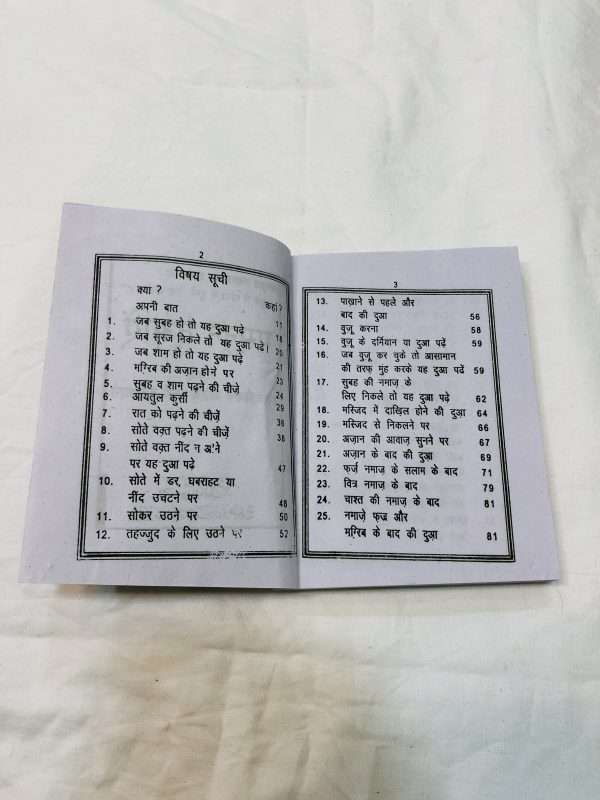 2
विषय सूची
क्या ? कहां ?
अपनी बात 11
1. जब सुबह हो तो यह दुआ पढ़े 18
2. जब सूरज निकले तो यह दुआ पढ़े। 20
3. जब शाम हो तो यह दुआ पढ़े 21
4. मग़्रिब की अज़ान होने पर 23
5. सुबह व शाम पढ़ने की चीज़ें 24
6. आयतुल कुर्सी 29
7. रात को पढ़ने की चीजें 36
8. सोते वक़्त पढ़ने की चीज़ें 38
9. सोते वक़्त नींद न आने
पर यह दुआ पढ़े 47
10. सोते में डर, घबराहट या
नींद उचटने पर 48
11. सोकर उठने पर 50
12. तहज्जुद के लिए उठने पर 52
3
13. पाख़ाने से पहले और
बाद की दुआ 56
14. वुज़ू करना 58
15. वुज़ू के दर्मियान या दुआ पढ़ें 59
16. जब वुज़ू कर चुके तो आसामान
की तरफ़ मुंह करके यह दुआ पढें 59
17. सुबह की नमाज़ के
लिए निकले तो यह दुआ पढ़े 62
18. मस्जिद में दाख़िल होने की दुआ 64
19. मस्जिद से निकलने पर 66
20. अज़ान की आवाज़ सुनने पर 67
21. अज़ान के बाद की दुआ 69
22. फर्ज़ नमाज़ के सलाम के बाद 71
23. वित्र नमाज़ के बाद 79
24. चाश्त की नमाज़ के बाद 81
25. नमाज़े फ़ज्र और
मग़्रिब के बाद की दुआ 81